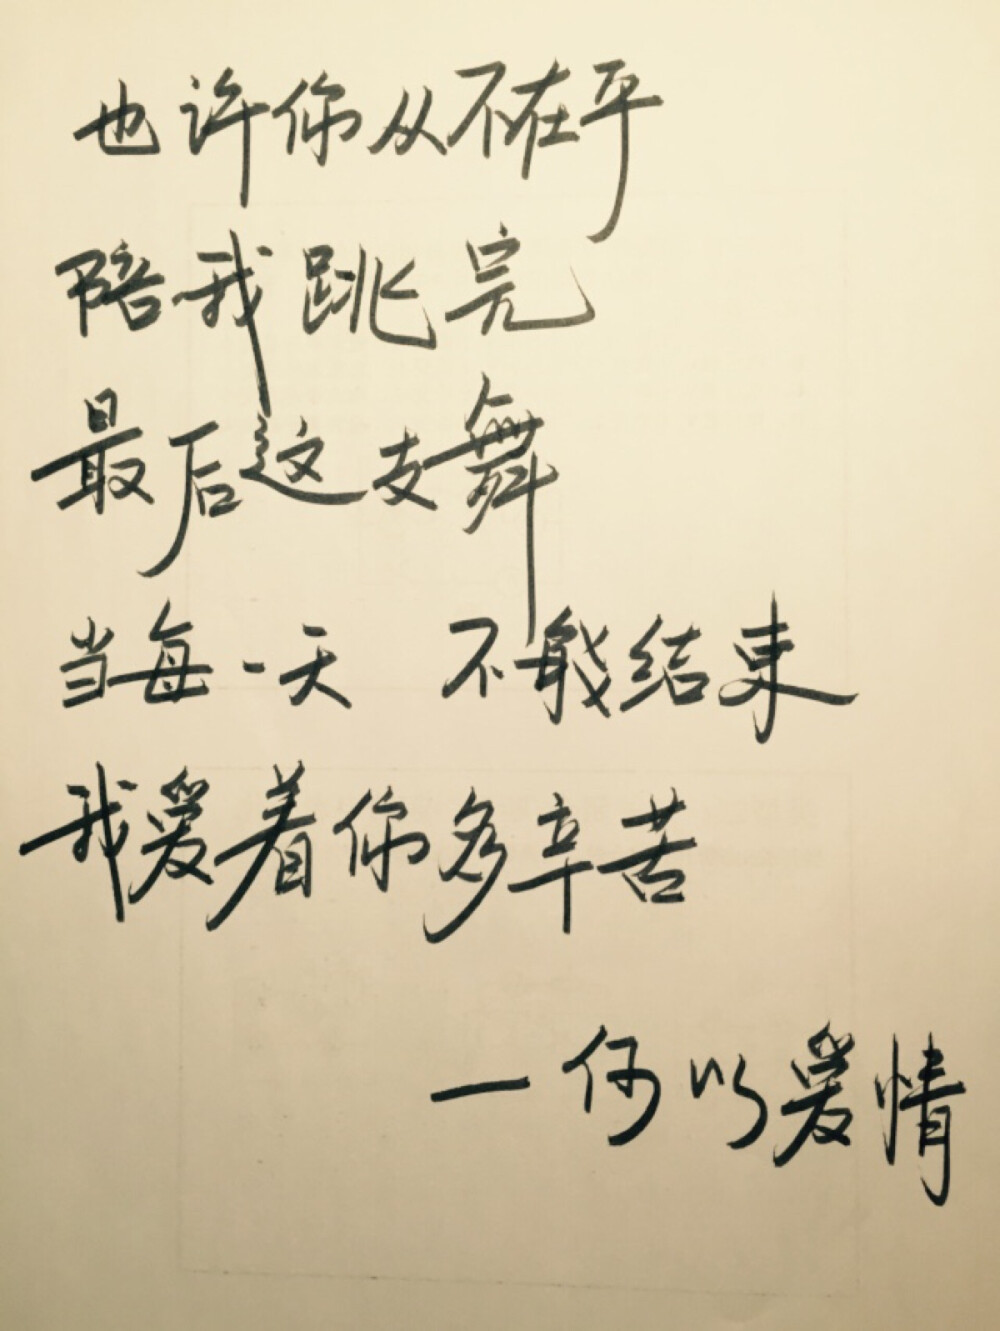 也许你从不在乎
陪我跳完
最后这支舞
当每一天 不能结束
我爱着你多辛苦
—何以爱情